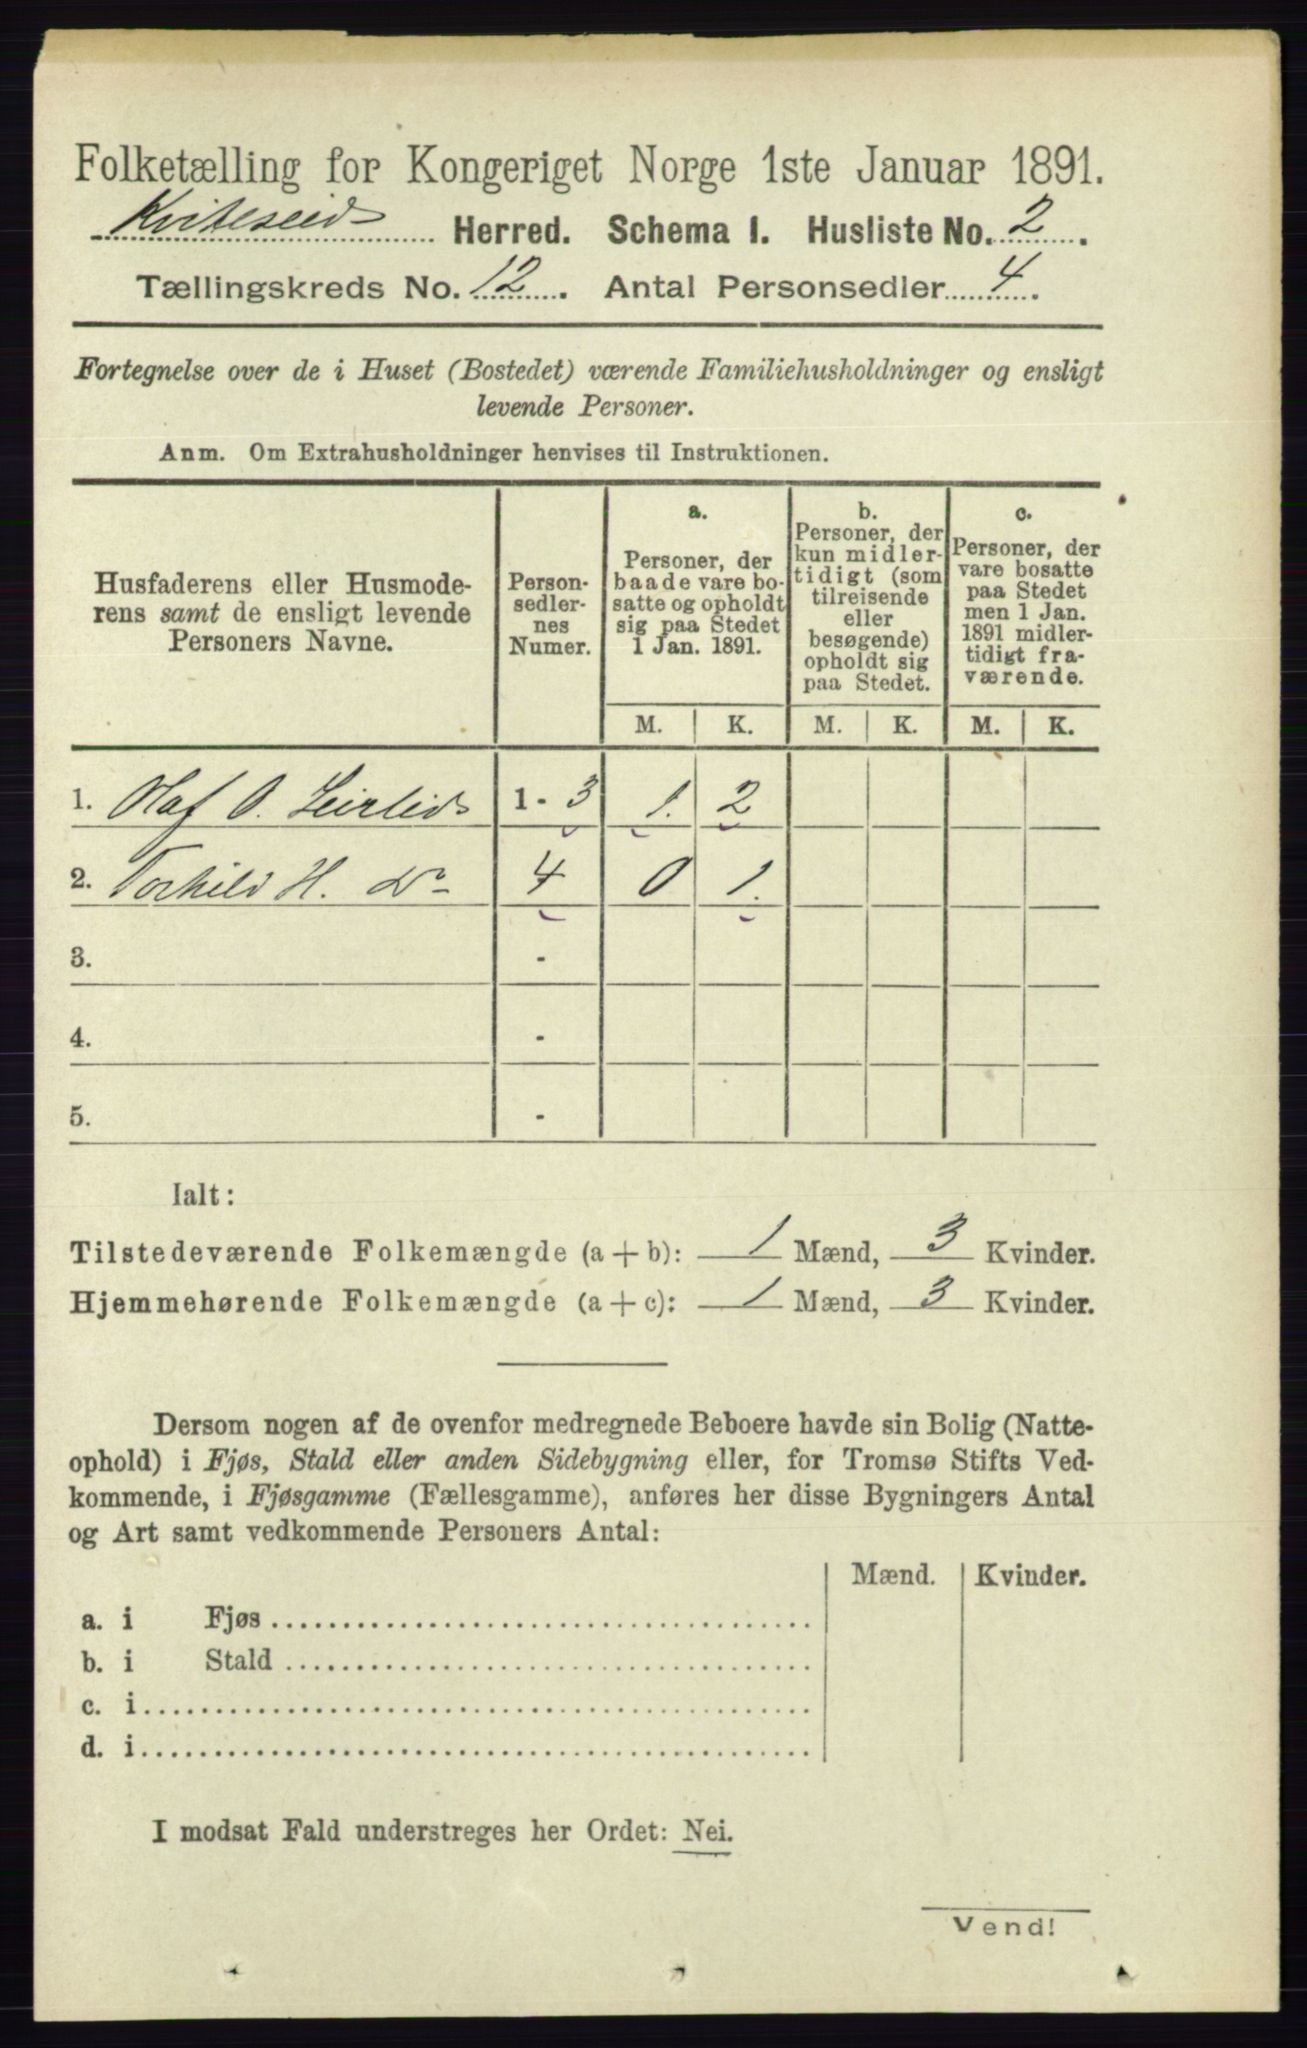 Folketælling for Kongeriget Norge 1ste Januar 1891.
Kviteseid Herred. Schema 1. Husliste No. 2.
Tællingskreds No. 12. Antal Personsedler 4.
Fortegnelse over de i Huset (Bostedet) værende Familiehusholdninger og ensligt
levende Personer.
Anm. Om Extrahusholdninger henvises til Instruktionen.
Husfaderens eller Husmode-
rens samt de ensligt levende
Personers Navne.
Person-
sedler-
nes
Numer.
a.
Personer, der
baade vare bo-
satte og opholdt
sig paa Stedet
1 Jan. 1891.
b.
Personer, der
kun midler-
tidigt (som
tilreisende
eller
besøgende)
opholdt sig
paa Stedet.
c.
Personer, der
vare bosatte
paa Stedet
men 1 Jan.
1891 midler-
tidigt fra-
værende.
M. K. M. K. M. K.
1. Olaf O. Leirlid 1 - 3 1. 2
2. Torhild H. Do 4 0 1.
3. -
4. -
5. -
Ialt:
Tilstedeværende Folkemængde (a + b): 1 Mænd, 3 Kvinder.
Hjemmehørende Folkemængde (a + c): 1 Mænd, 3 Kvinder.
Dersom nogen af de ovenfor medregnede Beboere havde sin Bolig (Natte-
ophold) i Fjøs, Stald eller anden Sidebygning eller, for Tromsø Stifts Ved-
kommende, i Fjøsgamme (Fællesgamme), anføres her disse Bygningers Antal
og Art samt vedkommende Personers Antal:
Mænd. Kvinder.
a. i Fjøs
b. i Stald
c. i
d. i
I modsat Fald understreges her Ordet: Nei.
Vend!